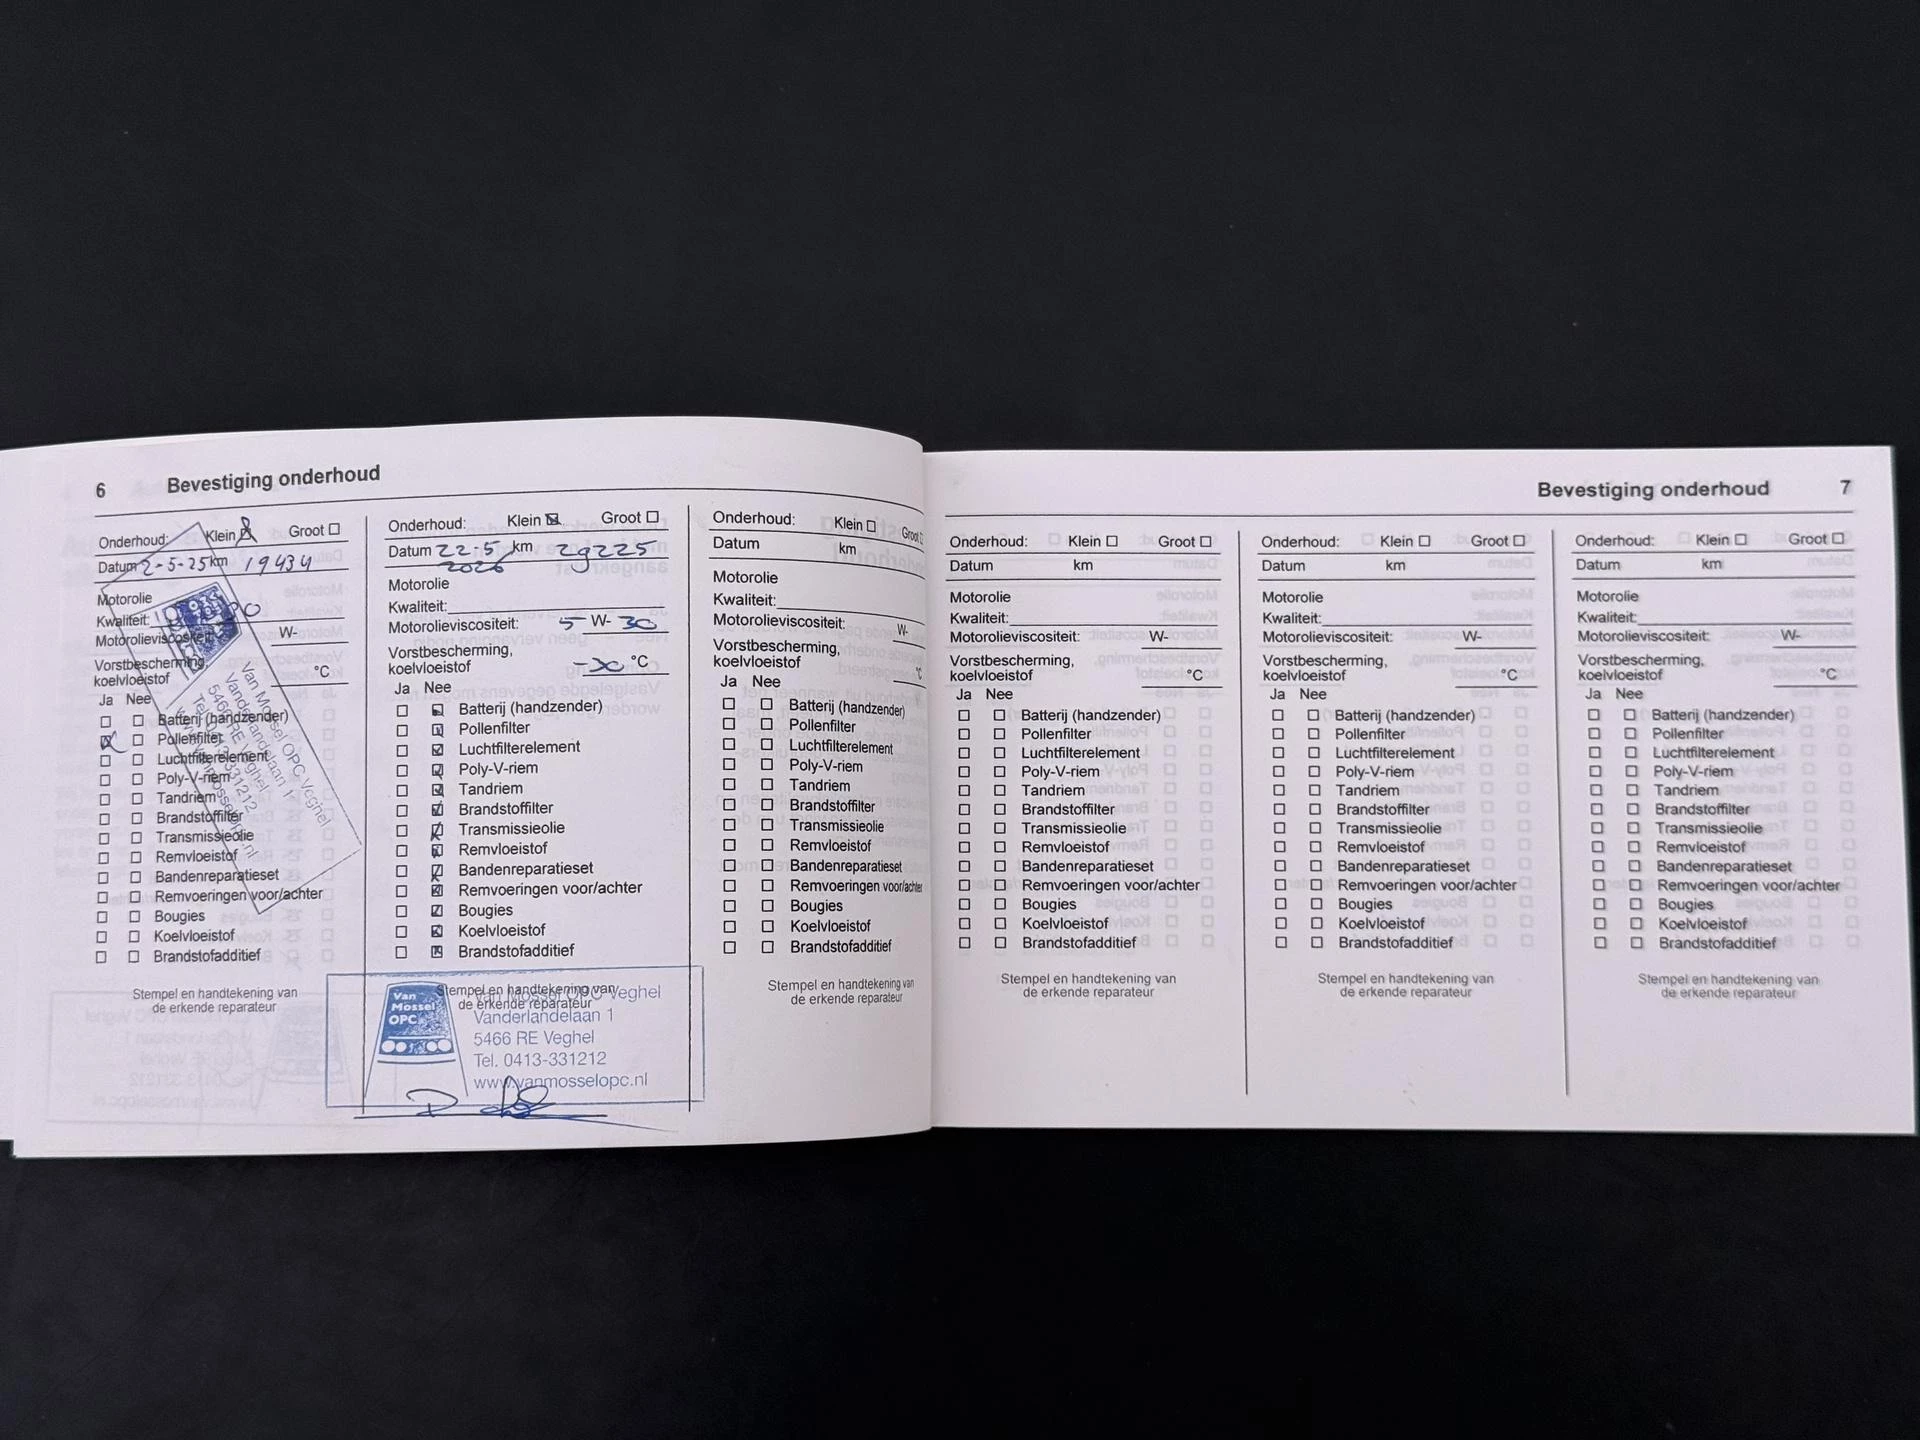 6 Bevestiging onderhoud
Onderhoud: Klein Groot
Datum 2-5-25 km 19434
Motorolie
Kwaliteit:
Motorolieviscositeit: W-
Vorstbescherming,
koelvloeistof °C
Ja Nee
Batterij (handzender)
Pollenfilter
Luchtfilterelement
Poly-V-riem
Tandriem
Brandstoffilter
Transmissieolie
Remvloeistof
Bandenreparatieset
Remvoeringen voor/achter
Bougies
Koelvloeistof
Brandstofadditief
Stempel en handtekening van
de erkende reparateur
Van Mossel OPC Veghel
Vanderlandelaan 1
5466 RE Veghel
Tel. 0413-331212
www.vanmosselopc.nl
Onderhoud: Klein Groot
Datum 22-5 km 29225
2026
Motorolie
Kwaliteit:
Motorolieviscositeit: 5 W- 30
Vorstbescherming,
koelvloeistof °C
Ja Nee
Batterij (handzender)
Pollenfilter
Luchtfilterelement
Poly-V-riem
Tandriem
Brandstoffilter
Transmissieolie
Remvloeistof
Bandenreparatieset
Remvoeringen voor/achter
Bougies
Koelvloeistof
Brandstofadditief
Stempel en handtekening van
de erkende reparateur
Van
Mossel
OPC
Van Mossel OPC Veghel
Vanderlandelaan 1
5466 RE Veghel
Tel. 0413-331212
www.vanmosselopc.nl
Onderhoud: Klein Groot
Datum km
Motorolie
Kwaliteit:
Motorolieviscositeit: W-
Vorstbescherming,
koelvloeistof °C
Ja Nee
Batterij (handzender)
Pollenfilter
Luchtfilterelement
Poly-V-riem
Tandriem
Brandstoffilter
Transmissieolie
Remvloeistof
Bandenreparatieset
Remvoeringen voor/achter
Bougies
Koelvloeistof
Brandstofadditief
Stempel en handtekening van
de erkende reparateur
Bevestiging onderhoud 7
Onderhoud: Klein Groot
Datum km
Motorolie
Kwaliteit:
Motorolieviscositeit: W-
Vorstbescherming,
koelvloeistof °C
Ja Nee
Batterij (handzender)
Pollenfilter
Luchtfilterelement
Poly-V-riem
Tandriem
Brandstoffilter
Transmissieolie
Remvloeistof
Bandenreparatieset
Remvoeringen voor/achter
Bougies
Koelvloeistof
Brandstofadditief
Stempel en handtekening van
de erkende reparateur
Onderhoud: Klein Groot
Datum km
Motorolie
Kwaliteit:
Motorolieviscositeit: W-
Vorstbescherming,
koelvloeistof °C
Ja Nee
Batterij (handzender)
Pollenfilter
Luchtfilterelement
Poly-V-riem
Tandriem
Brandstoffilter
Transmissieolie
Remvloeistof
Bandenreparatieset
Remvoeringen voor/achter
Bougies
Koelvloeistof
Brandstofadditief
Stempel en handtekening van
de erkende reparateur
Onderhoud: Klein Groot
Datum km
Motorolie
Kwaliteit:
Motorolieviscositeit: W-
Vorstbescherming,
koelvloeistof °C
Ja Nee
Batterij (handzender)
Pollenfilter
Luchtfilterelement
Poly-V-riem
Tandriem
Brandstoffilter
Transmissieolie
Remvloeistof
Bandenreparatieset
Remvoeringen voor/achter
Bougies
Koelvloeistof
Brandstofadditief
Stempel en handtekening van
de erkende reparateur